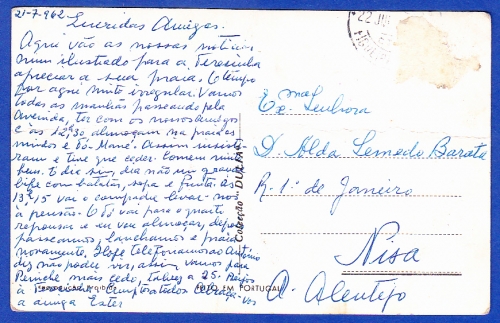 21-7-962
Queridas Amigas.
Aqui vão as nossas notícias
num ilustrado para a Teresinha
apreciar a sua praia. O tempo
por aqui muito irregular. Vamos
todas as manhãs passeando pela
Avenida, ter com os nossos
e às 12,30 almoçam na praia os
miúdos e Só-Mané. Assim insisti
ram e tive que ceder. Comem muito
bem. E diz sim, dia não um grande
bife com batatas, sopa e fruta. Às
13,15 vai o compadre levar-nos
à pensão. O Zé vai para o quarto
repousar e eu vou almoçar, depois
passeamos, lanchamos e praia
novamente. Hoje telefonamos ao António
diz não poder vir, assim vamos para
Peniche mais cedo, talvez a 25. Beijos
à
a amiga Ester
22 JUL
Exma Senhora
D. Alda Semedo Barata
R. 1º de Janeiro
Nisa
A. Alentejo
Colecção «DÚLIA»
FEITO EM PORTUGAL